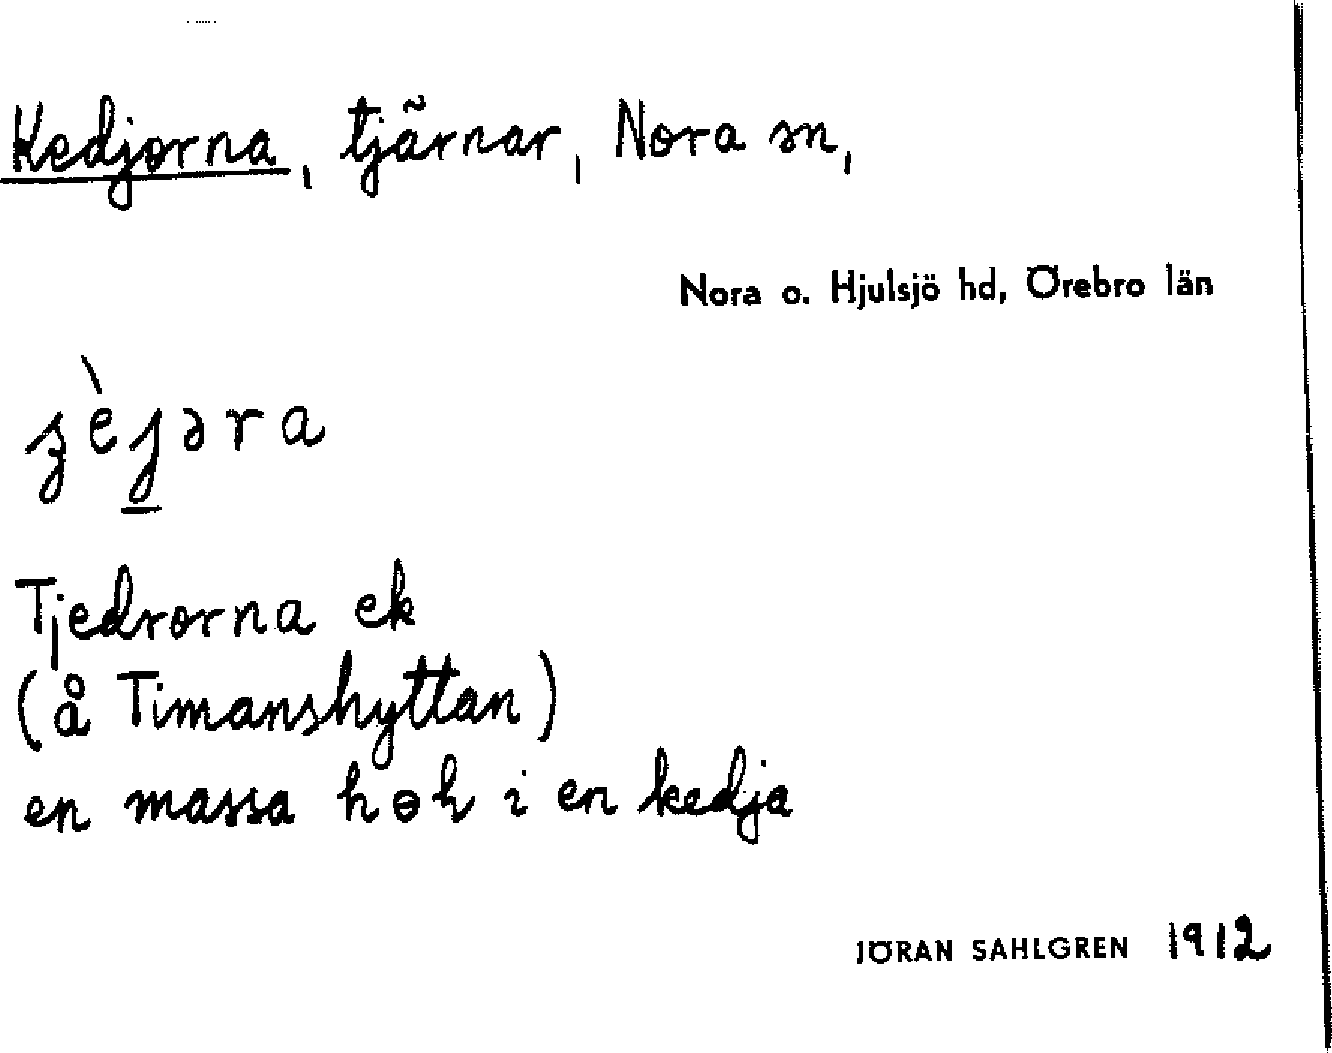 Kedjorna, tjärnar, Nora sn,
Nora o. Hjulsjö hd, Örebro län
Tjedrorna ek
(å Timanshyttan)
en massa höh i en kedja
JÖRAN SAHLGREN 1912